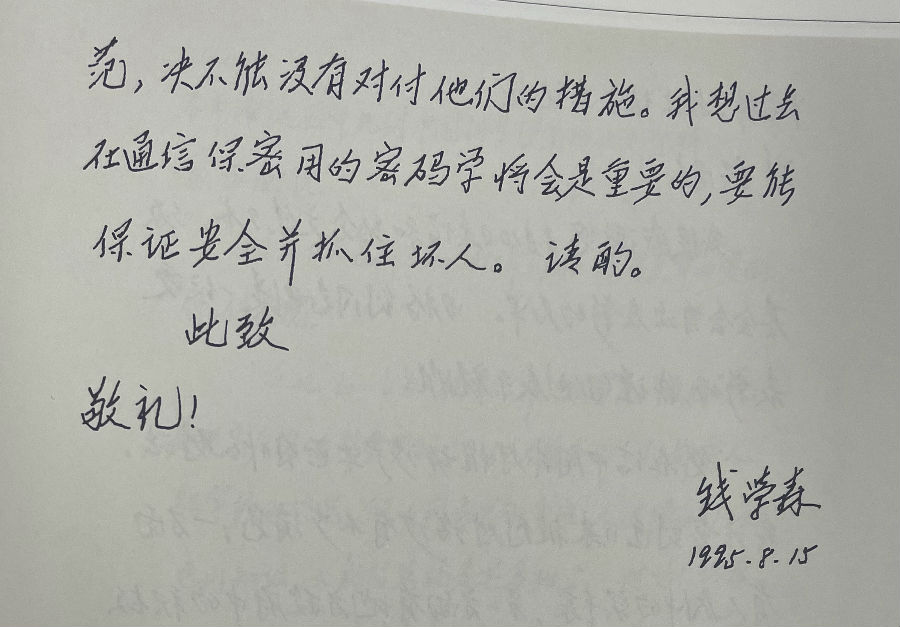 范，决不能没有对付他们的措施。我想过去
在通信保密用的密码学将会是重要的，要能
保证安全并抓住坏人。 请酌。
此致
敬礼！
钱学森
1995.8.15